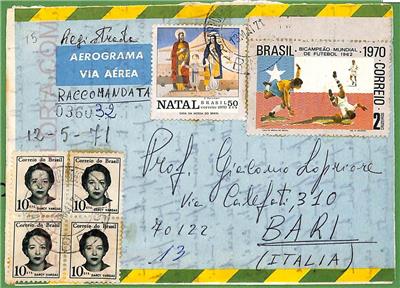 15 Registrada
AEROGRAMA
VIA AÉREA
RACCOMANDATA
036032
12-5-71
NATAL
BRASIL 50
correio 1970
BRASIL
BICAMPEÃO-MUNDIAL
DE FUTEBOL 1962
1970
CORREIO
2
Correio do Brasil
Correio do Brasil
10 CTS
DARCY VARGAS
10 CTS
DARCY VARGAS
Correio do Brasil
Correio do Brasil
10 CTS
DARCY VARGAS
10 CTS
DARCY VARGAS
Prof. Giacomo Lopriore
Via Calefati, 310
70122 BARI
13 (ITALIA)